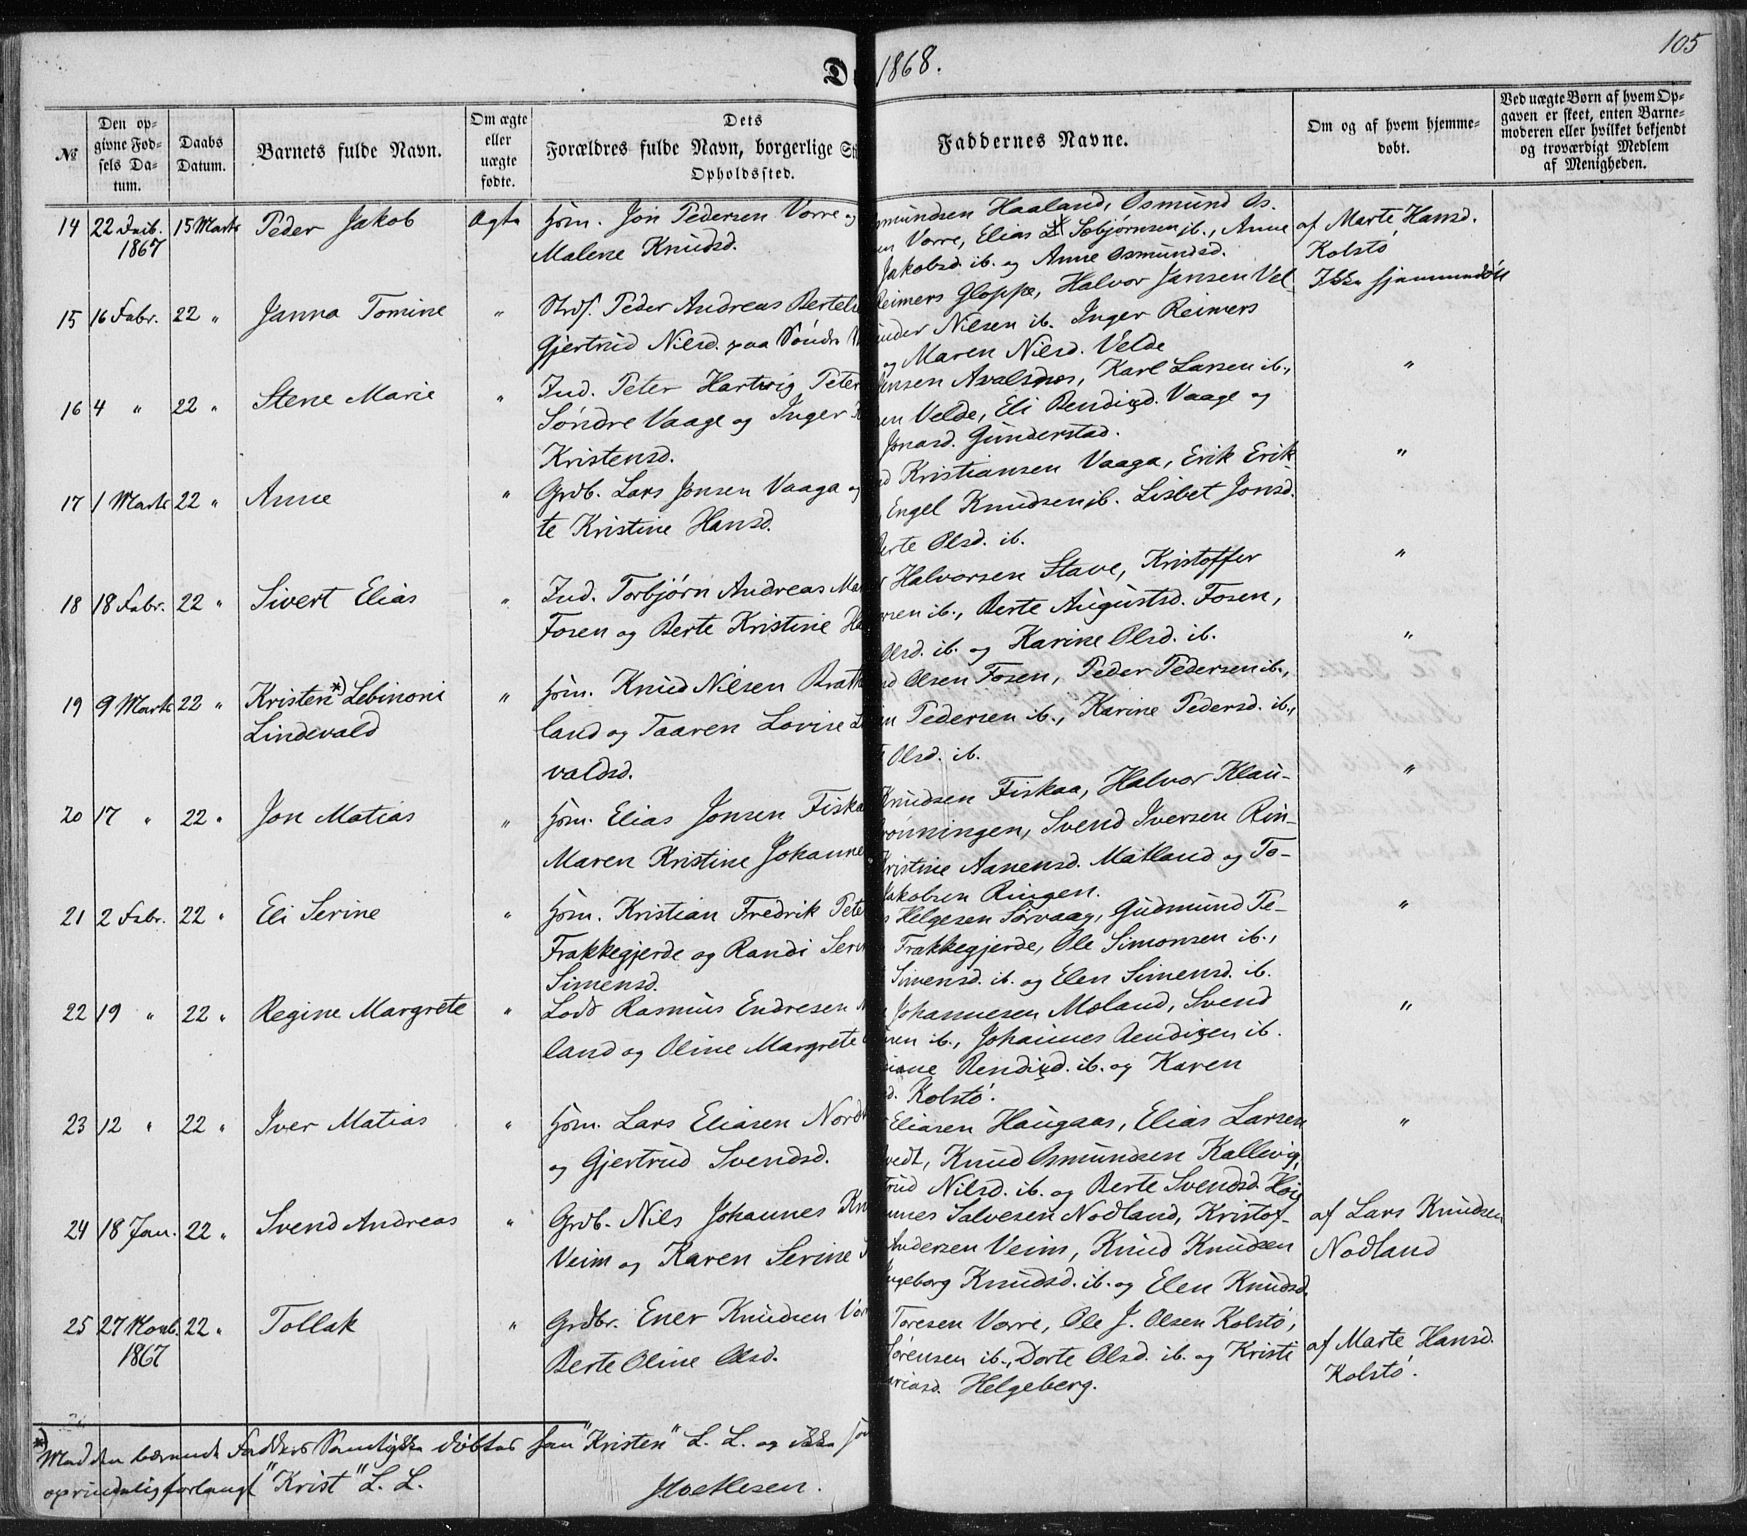 1868.
105
№
Den opgivne Fødsels Datum.
Daabs Datum.
Barnets fulde Navn.
Om ægte eller uægte fødte.
Dets Forældres fulde Navn, borgerlige
Opholdssted.
Faddernes Navne.
Om og af hvem hjemmedøbt.
Ved uægte Børn af hvem Opgaven er skeet, enten Barnemoderen eller hvilket bekjendt og troværdigt Medlem af Menigheden.
14 22 Deib. 1867 15 Marts Peder Jakob Ægte Hsm. Jon Pedersen Vorre og
Malene Knudsd.
mundsen Haaland, Osmund Os-
en Vorre, Elias Asbjørnsen ib., Anne
Jakobsd. ib. og Anne Osmundsd.
af Marte Hansd.
Kolstø
15 16 Febr. 22 " Janna Tomine " Strdf. Peder Andreas Bertels
Gjertrud Nilsd. paa Søndre
Reimers Gloppe, Halvor Jansen Vel-
under Nilsen ib. Inger Reimers
og Maren Nilsd. Velde
Ikke hjemmedøbt
16 4 " 22 " Stene Marie " Ind. Peter Hartvig Peter
Søndre Vaage og Inger
Kristensd.
ensen Avalsnes, Karl Larsen ib.,
en Velde, Eli Bendixd. Vaage og
Jonasd. Gunderstad.
"
17 1 Marts 22 " Anne " Grdb. Lars Jonsen Vaaga og
te Kristine Hansd.
d Kristiansen Vaaga, Erik Erik-
Engel Knudsen ib. Lisbet Jonsd.
erte Olsd. ib.
"
18 18 Febr. 22 " Sivert Elias " Ind. Torbjørn Andreas Ma
Fosen og Berte Kristine Ha
Halvorsen Stave, Kristoffer
rsen ib., Berte Augustsd. Fosen,
Olsd. ib. og Karine Olsd. ib.
"
19 9 Marts 22 " Kristen *) Lebinoni
Lindevald " Hsm. Knud Nilsen Brat
land og Taaren Lovise L
valdsd.
d Olsen Fosen, Peder Pedersen ib.,
en Pedersen ib., Karine Pedersd. ib.,
Olsd. ib.
"
20 17 " 22 " Jon Matias " Hsm. Elias Jonsen Fiska
Maren Kristine Johanne
Knudsen Fiskaa, Halvor Klau-
rønningen, Svend Iversen Rin-
ristine Aanensd. Matland og To-
Jakobsen Ringen.
"
21 2 Febr. 22 " Eli Serine " Hsm. Kristian Fredrik Pete
Frakkegjerde og Randi Seri
Simensd.
s Helgesen Sørvaag, Gudmund Te-
Frakkegjerde, Ole Simonsen ib.,
Simensd. ib. og Elen Simensd. ib.
"
22 19 " 22 " Regine Margrete " Lods Rasmus Endresen
land og Oline Margrete
Johannesen Moland, Svend
sen ib., Johannes Bendixen ib.
iane Bendixd. ib. og Karen
d. Kolstø.
"
23 12 " 22 " Iver Matias " Hsm. Lars Eliasen Nord
og Gjertrud Svendsd.
Eliasen Haugaas, Elias Larsen
vedt, Knud Osmundsen Kallevig,
trud Nilsd. ib. og Berte Svendsd. Høie
"
24 18 Jan. 22 " Svend Andreas " Grdb. Nils Johannes Kn
Veim og Karen Serine
nnes Salvesen Nodland, Kristof-
Andersen Veim, Knud Knudsen
ngeborg Knudsd. ib. og Elen Knudsd.
af Lars Knudsen
Nodland
25 27 Novb. 1867 22 " Tollak " Grdbr. Ener Knudsen Vor
Berte Oline Olsd.
Toresen Vorre, Ole J. Olsen Kolstø,
Sørensen ib., Dorte Olsd. ib. og Kristi
ariasd. Helgeberg.
af Marte Hansd.
Kolstø.
*) Med den bærende Fadders Samtykke døbtes han "Kristen" L. L. og ikke
oprindelig forlangt "Krist" L. L.